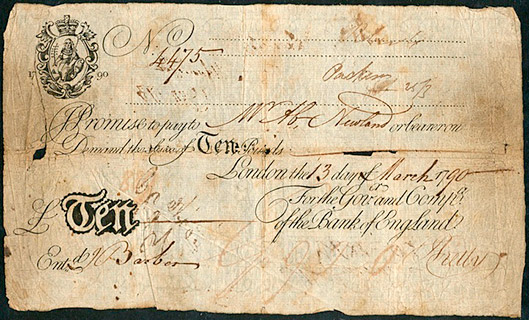 17 90
No 4475
I Promise to pay to Mr. Ab. Newland or bearer on
Demand the Sum of Ten Pounds
London the 13 day of March 1790
For the Govr. and Compa.
of the Bank of England
£ Ten
Entd. Barber